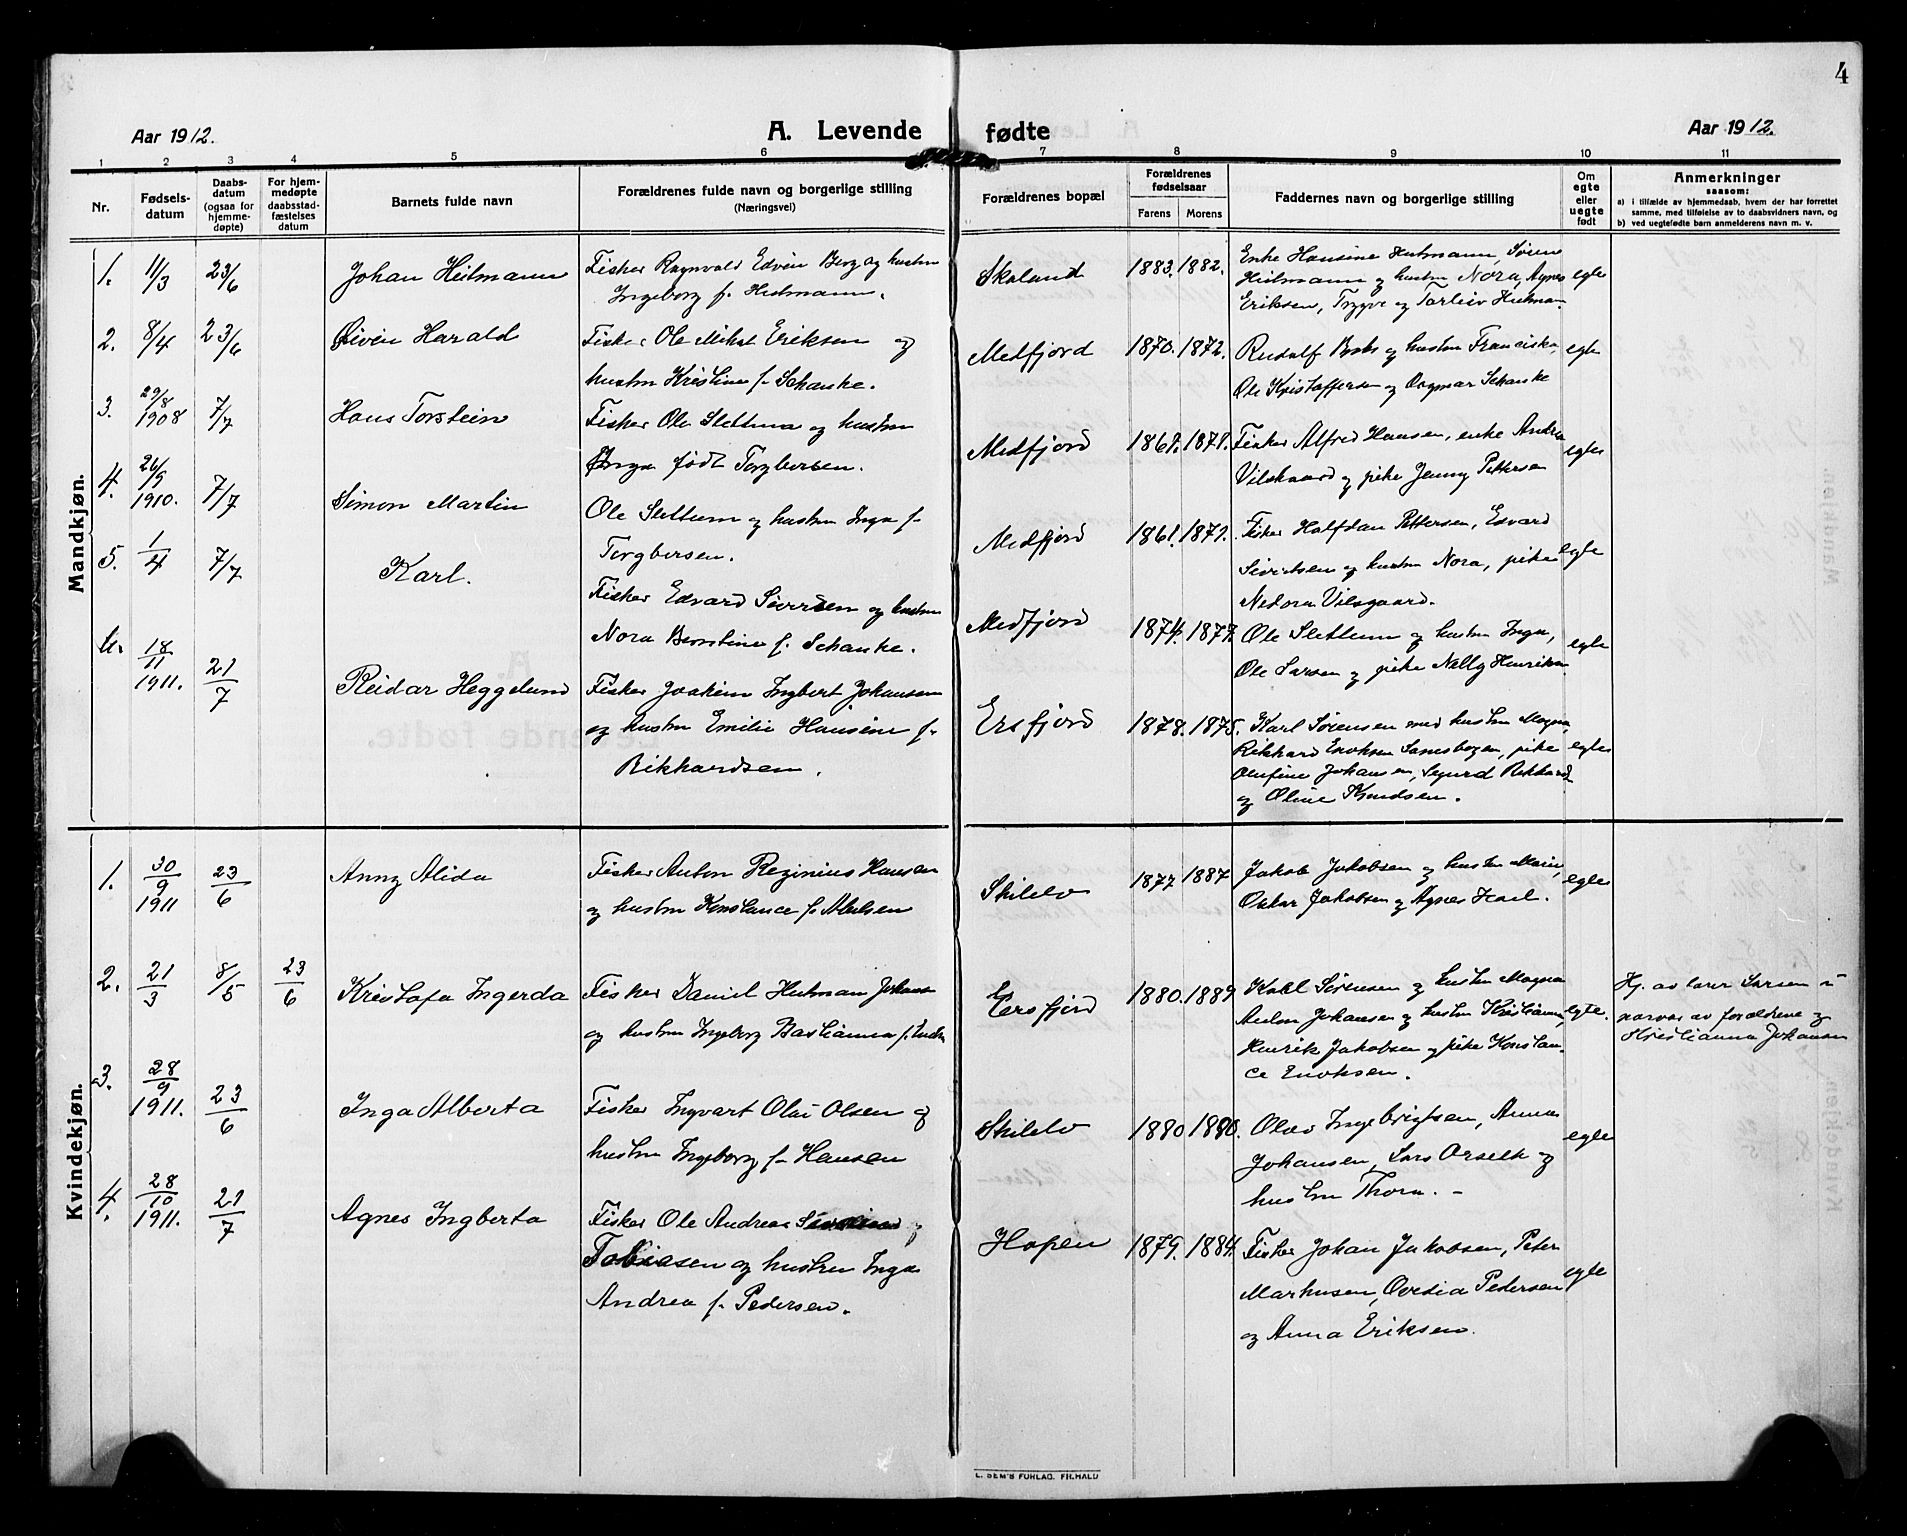 4
Aar 1912.
A. Levende fødte
Aar 1912.
1 2 3 4 5 6 7 8 9 10 11
Nr.
Fødsels-
datum
Daabs-
datum
(ogsaa for
hjemme-
døpte)
For hjem-
medøpte
daabsstad-
fæstelses
datum
Barnets fulde navn
Forældrenes fulde navn og borgerlige stilling
(Næringsvei)
Forældrenes bopæl
Forældrenes
fødselsaar
Farens Morens
Faddernes navn og borgerlige stilling
Om
egte
eller
uegte
født
Anmerkninger
saasom:
a) i tilfælde av hjemmedaab, hvem der har forrettet
samme, med tilføielse av to daabsvidners navn, og
b) ved uegtefødte barn anmelderens navn m. v.
Mandkjøn.
1. 11/3 23/6 Johan Heitmann
Fisker Ragnvald Edvin Berg og hustru
Ingeborg f. Heitmann.
Skaland 1883. 1882.
Enke Hansine Heitmann, Søren
Heitmann og hustru Nora, Agnes
Eriksen, Trygve og Torleiv Heitman
egte
2. 8/4 23/6 Øivin Harald
Fisker Ole Mikal Eriksen og
hustru Kristine f. Schanke.
Medfjord 1870. 1872.
Rudolf og hustru Franciska,
Ole Kristoffersen og Dagmar Schanke
egte
3. 29/8 1908 7/7 Hans Torstein
Fisker Ole Slettum og hustru
Inga født Torgbersen.
Medfjord 1861. 1871.
Fisker Alfred Hansen, enke Andrea
Vilsgaard og pike Jenny Pettersen
egte
4. 26/9 1910. 7/7 Simon Martin
Ole Slettum og hustru Inga f.
Torgbersen.
Medfjord 1861. 1871.
Fisker Halfdan Pettersen, Edvard
Sivertsen og hustru Nora, pike
Nedora Vilsgaard.
egte
5. 1/4 7/7 Karl.
Fisker Edvard Sivertsen og hustru
Nora Berntine f. Schanke.
Medfjord 1874. 1877.
Ole Slettum og hustru Inga,
Ole Larsen og pike Nelly Henriksen
egte
6. 18/11 1911. 21/7 Reidar Heggelund
Fisker Joakim Ingbert Johansen
og hustru Emilie Hansine f.
Rikhardsen.
Ersfjord 1878. 1875.
Karl Sørensen med hustru Magna,
Rikhard Enoksen Sanesbogen, pike
Olufine Johansen, Sigurd Rikhards
og Oline Knudsen.
egte
Kvindekjøn.
1. 30/9 1911 23/6 Anny Alida
Fisker Anton Reginius Hansen
og hustru Konstance f. Abelsen
Skilelv 1877 1887
Jakob Jakobsen og hustru Marie,
Oskar Jakobsen og Agnes Karl.
egte
2. 21/3 8/5 23/6 Kristofa Ingerda
Fisker Daniel Heitman Johans
og hustru Ingeborg Bastianna f.
Ersfjord 1880. 1889
Karl Sørensen og hustru Magna
Anton Johansen og hustru Kristianna,
Henrik Jakobsen og pike Konstan-
ce Enoksen.
egte.
Hj. av lærer Larsen i
nærvær av forældrene og
Kristianna Johansen
3. 28/9 1911. 23/6 Inga Alberta
Fisker Ingvart Olai Olsen og
hustru Ingeborg f. Hansen
Skilelv 1880 1880.
Olav Ingebrigtsen, Anna
Johansen, Lars Orseth og
hustru Thora. -
egte
4. 28/10 1911. 21/7 Agnes Ingberta
Fisker Ole Andreas
Tobiasen og hustru Inga
Andrea f. Pedersen.
Hopen 1879. 1884.
Fisker Johan Jakobsen, Peter
Markusen, Ovedia Pedersen
og Anna Eriksen.
egte
E. SEM'S FORLAG. FR.HALD